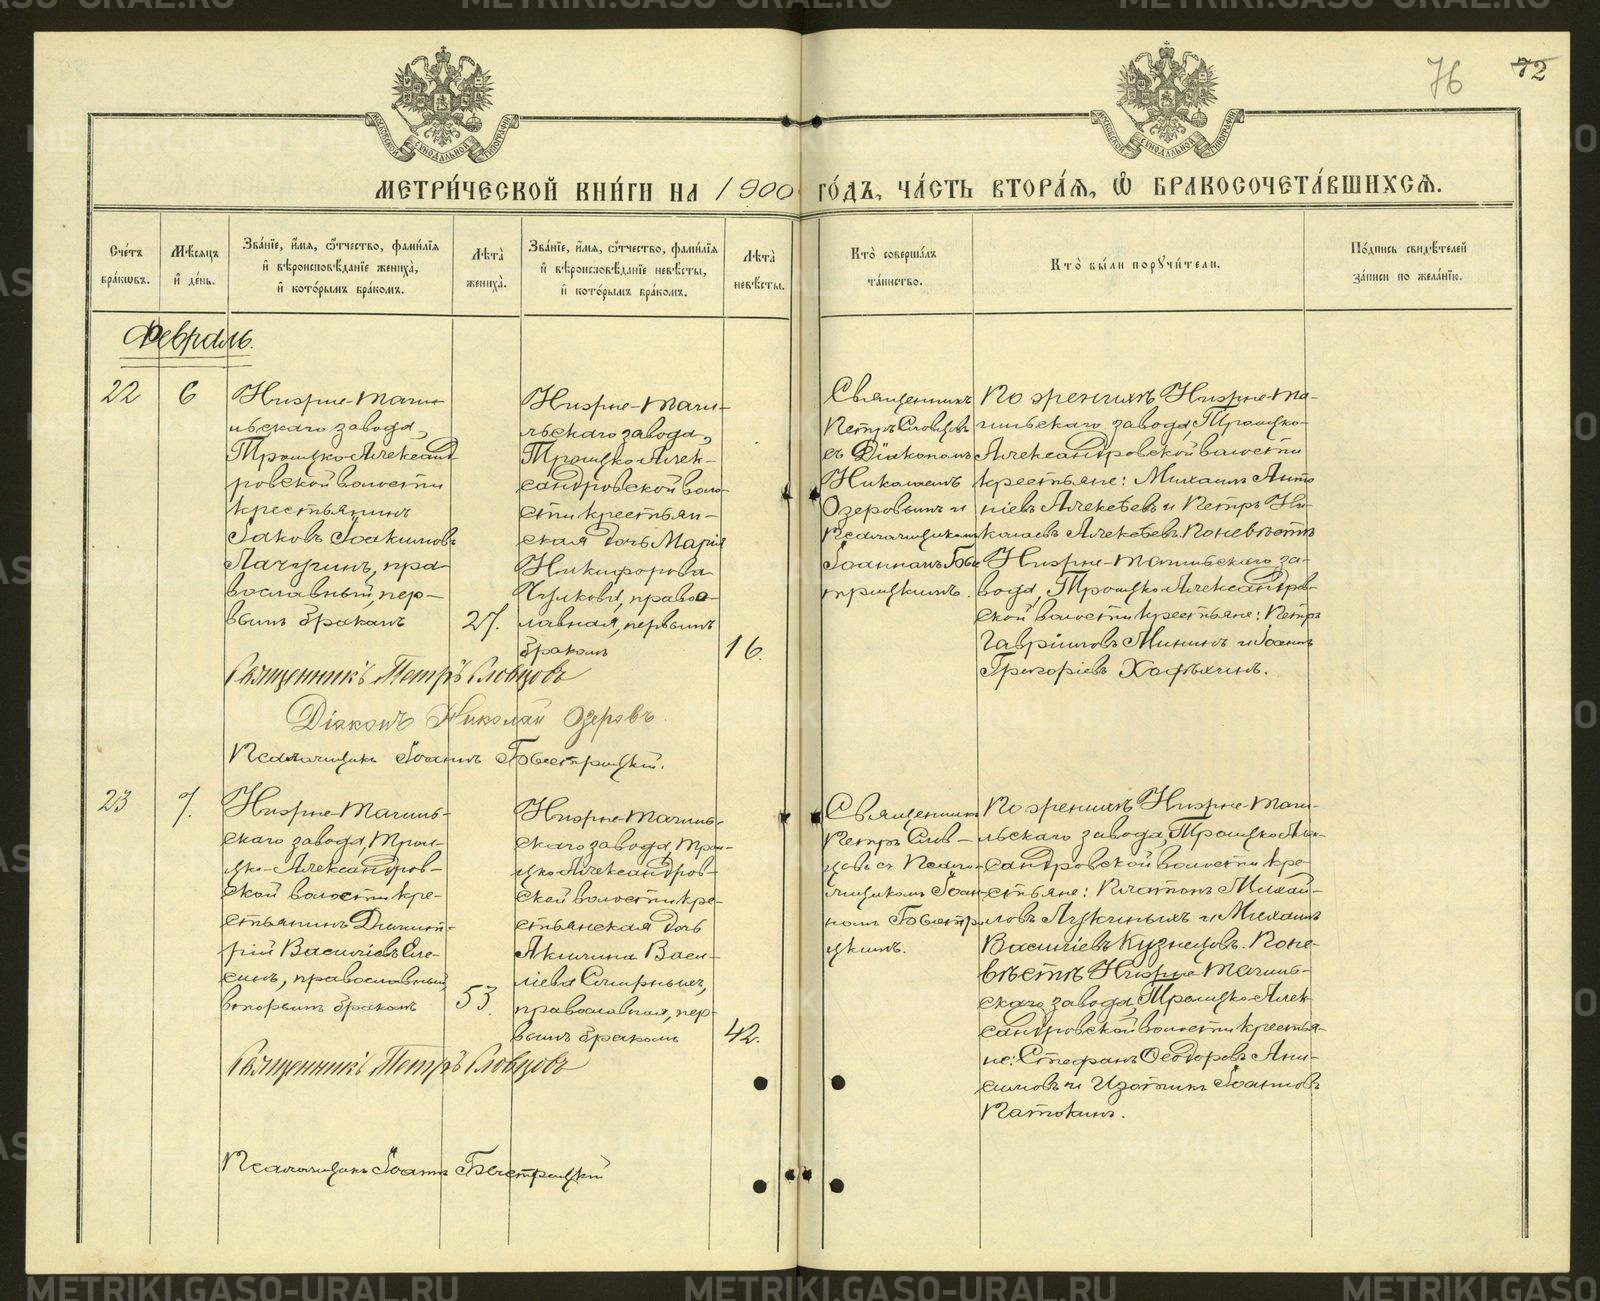 METRIKI.GASO-URAL.RU
76 72
МОСКОВСКОЙ СѴНОДАЛЬНОЙ ТИПОГРАФІИ
МОСКОВСКОЙ СѴНОДАЛЬНОЙ ТИПОГРАФІИ
МЕТРИ́ЧЕСКОЙ КНИ́ГИ НА 1900 ГО́ДЪ, ЧА́СТЬ ВТОРА́Я, Ѽ БРАКОСОЧЕТА́ВШИХСЯ.
Сче́тъ
бра́кωвъ.
Мѣ́сяцъ
и҆ де́нь.
Зва́нїе, и҆́мя, ѻ҆́тчество, фами́лїя
и҆ вѣроисповѣ́данїе жениха̀,
и҆ кото́рымъ бра́комъ.
Лѣта̀
жениха̀.
Зва́нїе, и҆́мя, ѻ҆́тчество, фами́лїя
и҆ вѣроисповѣ́данїе невѣ́сты,
и҆ кото́рымъ бра́комъ.
Лѣта̀
невѣ́сты.
Кто̀ соверша́лъ
та́инство.
Кто̀ бы́ли порꙋчи́тели.
По́дпись свидѣ́телей
за́писи по жела́нїю.
Февраль.
22
6
Нижне-Таги-
льскаго завода,
Троицко-Александ
ровской волости
крестьянинъ
Іаковъ Іоакимовъ
Лачугинъ, пра-
вославный, пер-
вымъ бракомъ
27.
Нижне-Таги-
льскаго завода,
Троицко-Алек-
сандровской воло-
сти крестьян-
ская дочь Марія
Никифорова
Чуркова, право-
лавная, первымъ
бракомъ
16.
Священникъ
Петръ Словцовъ
съ Діакономъ
Николаемъ
Озеровымъ и
Псаломщикомъ
Іоанномъ Бы
трицкимъ.
По женихѣ Нижне-Та-
гильскаго завода, Троицко-
Александровской волости
крестьяне: Михаилъ Анто
ніевъ Алексѣевъ и Петръ Ни-
колаевъ Алексѣевъ. По невѣстѣ
Нижне-Тагильскаго за-
вода, Троицко-Александров-
ской волости крестьяне: Петръ
Гавріиловъ Мининъ и Іоаннъ
Григоріевъ
Священникъ Петръ Словцовъ
Діаконъ Николай Озеровъ.
Псаломщикъ Іоаннъ Быстрицкій.
23
7.
Нижне-Тагиль-
скаго завода, Трои-
цко-Александров-
ской волости кре-
стьянинъ Димит-
рій Василіевъ
православный,
вторымъ бракомъ
53.
Нижне-Тагиль-
скаго завода, Трои-
цко-Александров-
ской волости кре-
стьянская дочь
Акилина Васи-
ліева
православная, пер-
вымъ бракомъ
42.
Священникъ
Петръ Слов-
цовъ съ Псало-
мщикомъ Іоан-
номъ Быстри
цкимъ.
По женихѣ Нижне-Таги-
льскаго завода, Троицко Але-
сандровской волости кре-
стьяне: Платонъ Михаи-
ловъ Лукиныхъ и Михаилъ
Василіевъ Кузнецовъ. По не-
вѣстѣ Нижне-Тагиль-
скаго завода, Троицко-Алек
сандровской волости крестья-
не: Стефанъ Ѳеодоровъ Ани-
симовъ и Изотикъ Іоанновъ
Священникъ Петръ Словцовъ
Псаломщикъ Іоаннъ Быстрицкій